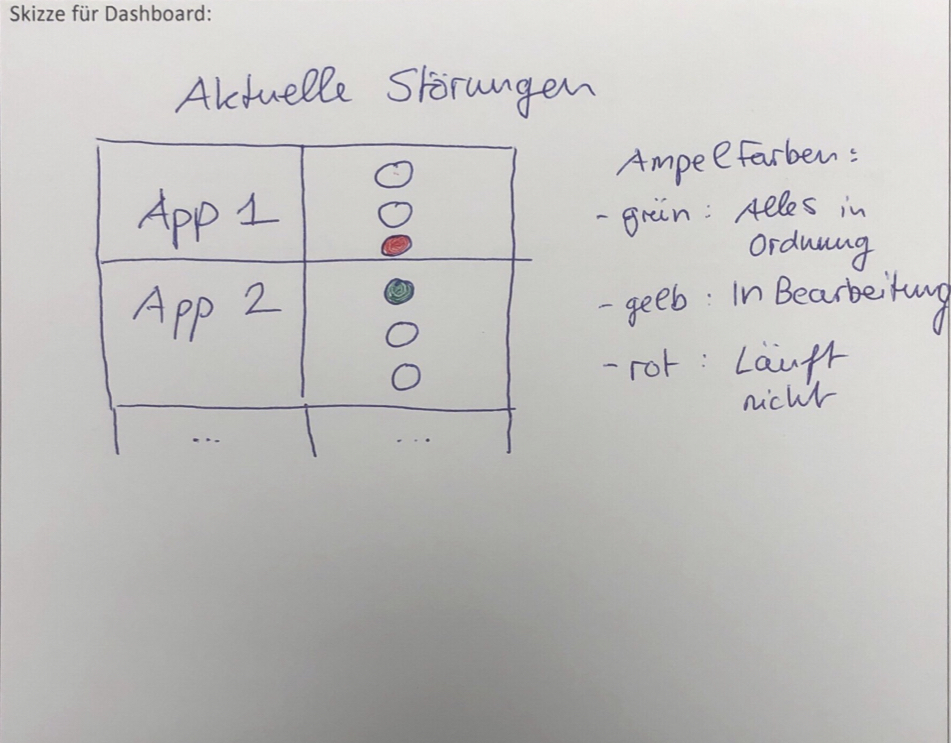 Skizze für Dashboard:
Aktuelle Störungen
App 1
App 2
... ...
Ampelfarben:
- grün: Alles in
Ordnung
- gelb: In Bearbeitung
- rot: Läuft
nicht